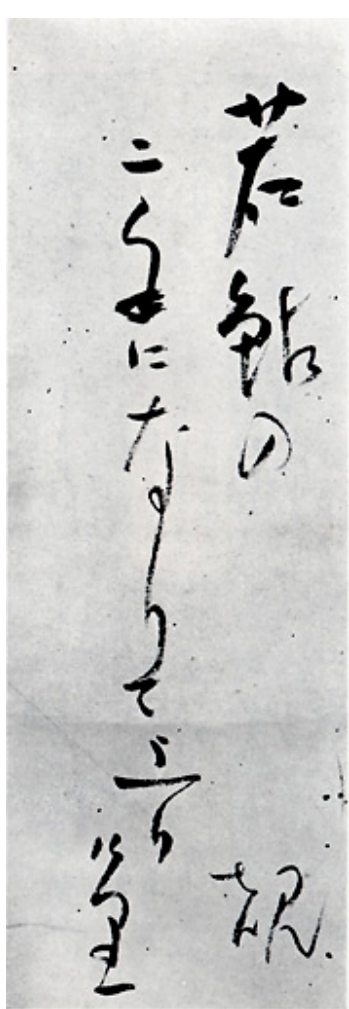 若鮎の
二手になりて上りけり
規